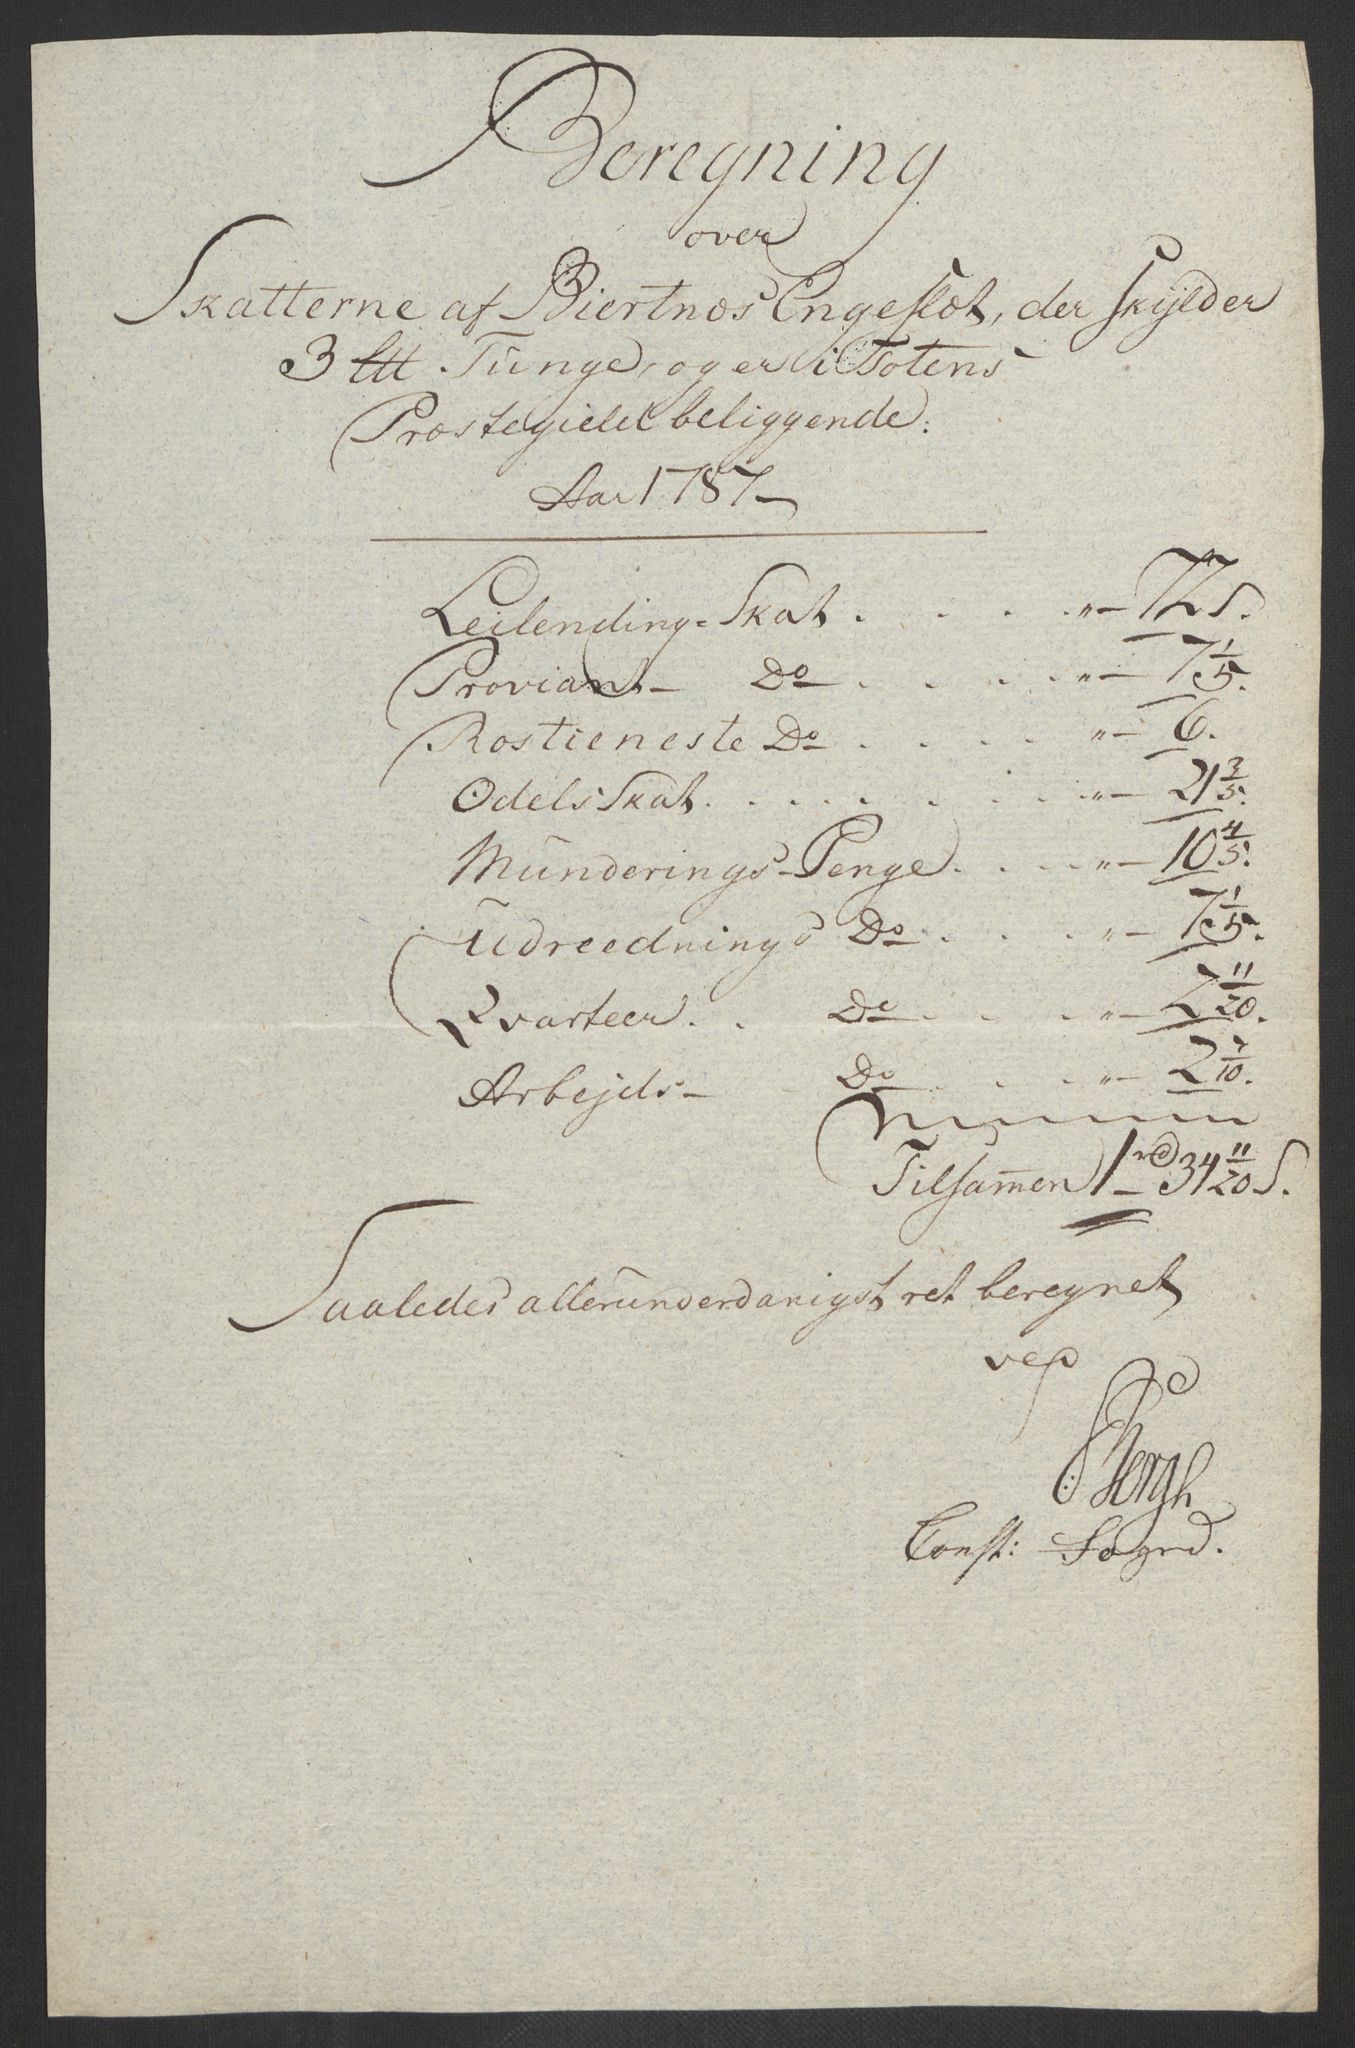 Beregning
over
Skatterne af Biertnæs Engeslæt, der skylder
3 L℔ Tunge, og er i Totens
Præstegield beliggende.
Aar 1787
Leilending-Skat . . . . „ — 72 s.
Proviant- Do . . . . „ — 7 1/5.
Rostieneste Do . . . . „ — 6.
Odels Skat . . . . . . . „ — 21 3/5.
Munderings-Penge . . . „ — 10 4/5.
Udreednings Do . . . „ — 7 1/5.
Qvarteer . . Do . . . „ — 7 11/20.
Arbejds- Do . . . „ — 2 7/10.
Tilsam̅en 1 rd 34 11/20 s.
Saaledes allerunderdanigst ret beregnet
ved
Bergh
Const: Fogd.